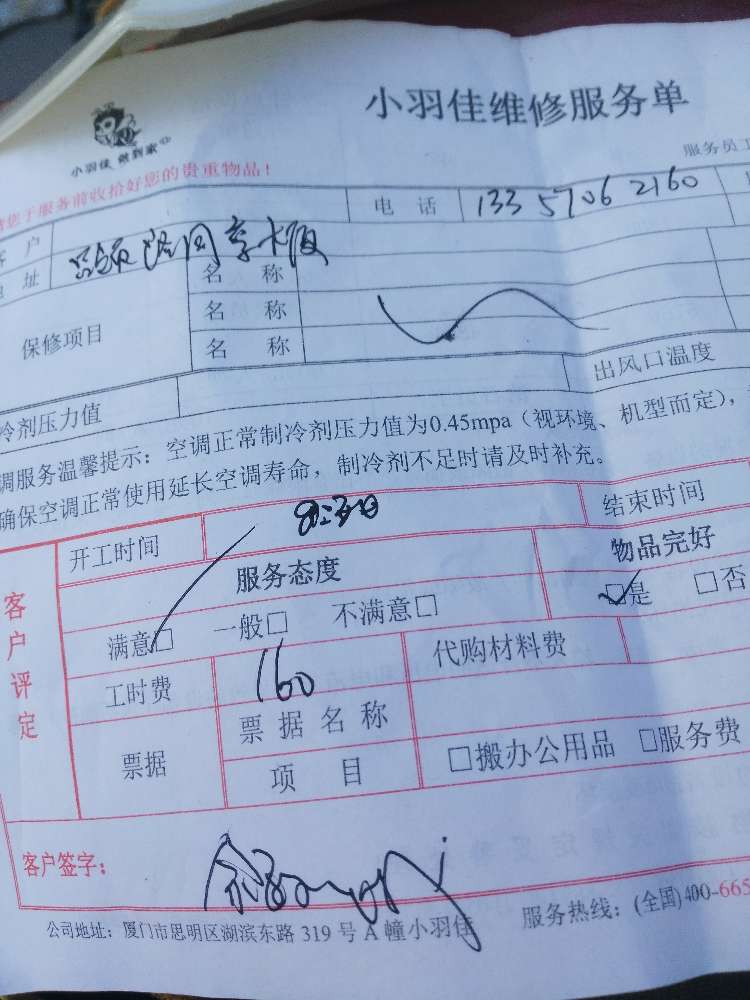 小羽佳维修服务单
小羽佳 做到家
服务员工
请您于服务前收拾好您的贵重物品！
客户
电话 133 5706 2160
地址
保修项目
名称
名称
名称
冷剂压力值
出风口温度
调服务温馨提示：空调正常制冷剂压力值为0.45mpa（视环境、机型而定），
确保空调正常使用延长空调寿命，制冷剂不足时请及时补充。
客户评定
开工时间
结束时间
服务态度
物品完好
满意□ 一般□ 不满意□
□是 □否
工时费 160
代购材料费
票据
票据名称
项目
□搬办公用品 □服务费
客户签字：
公司地址：厦门市思明区湖滨东路 319 号 A 幢小羽佳
服务热线：(全国)400-665